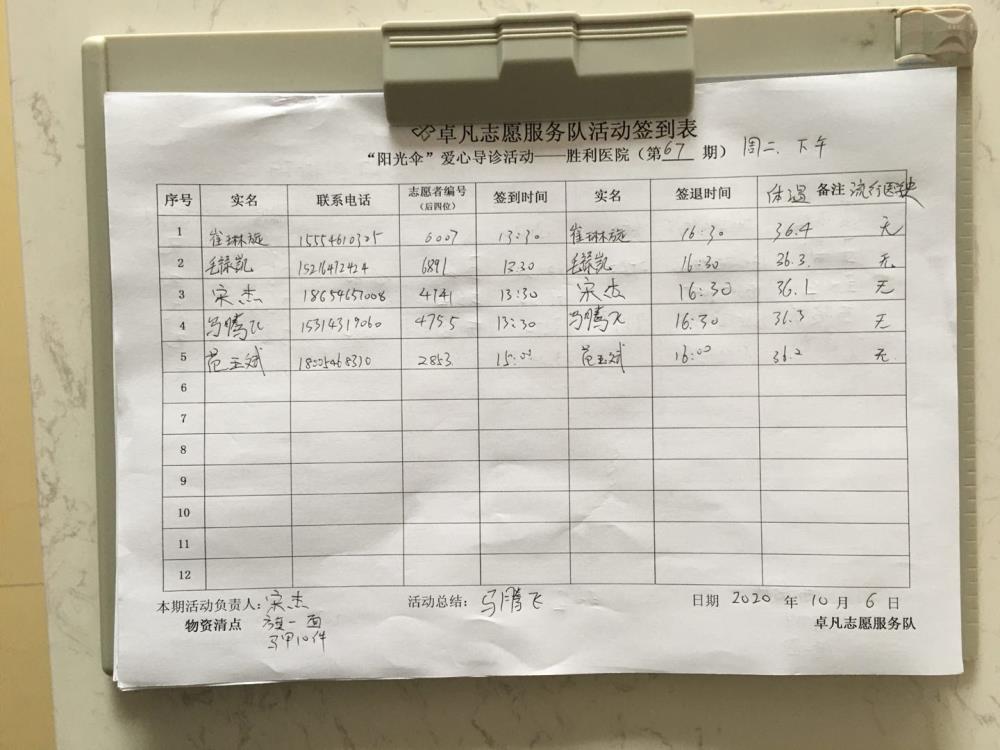 卓凡志愿服务队活动签到表
“阳光伞”爱心导诊活动——胜利医院（第67期） 周二.下午
序号 实名 联系电话 志愿者编号（后四位） 签到时间 实名 签退时间 体温 备注 流行医史
1 崔琳旋 15554610325 6007 13:30 崔琳旋 16:30 36.4 无
2 毛禄凯 15216472424 6891 13:30 毛禄凯 16:30 36.3 无
3 宋杰 18654657008 4741 13:30 宋杰 16:30 36.1 无
4 马腾飞 15314319060 4755 13:30 马腾飞 16:30 36.3 无
5 范玉斌 18005468310 2853 15:00 范玉斌 16:00 36.2 无
6
7
8
9
10
11
12
本期活动负责人：宋杰 活动总结：马腾飞 日期 2020 年 10 月 6 日
物资清点 旗一面 卓凡志愿服务队
马甲10件